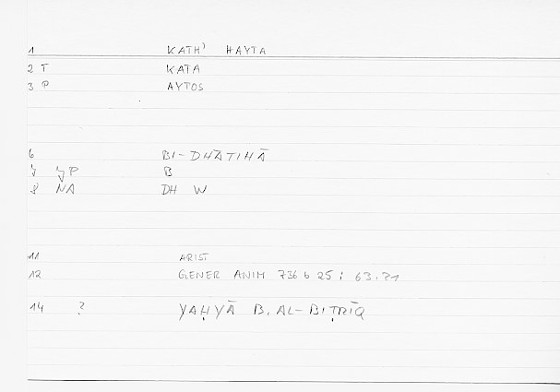 1 KATH' HAYTA
2 T KATA
3 P AYTOS
6 BI-DHĀTIHĀ
7 B
8 NA DH W
11 ARIST
12 GENER ANIM 736 b 25 : 63.21
14 ? YAḤYĀ B. AL-BIṬRĪQ